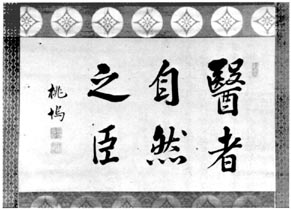 醫者
自然
之臣
桃塢